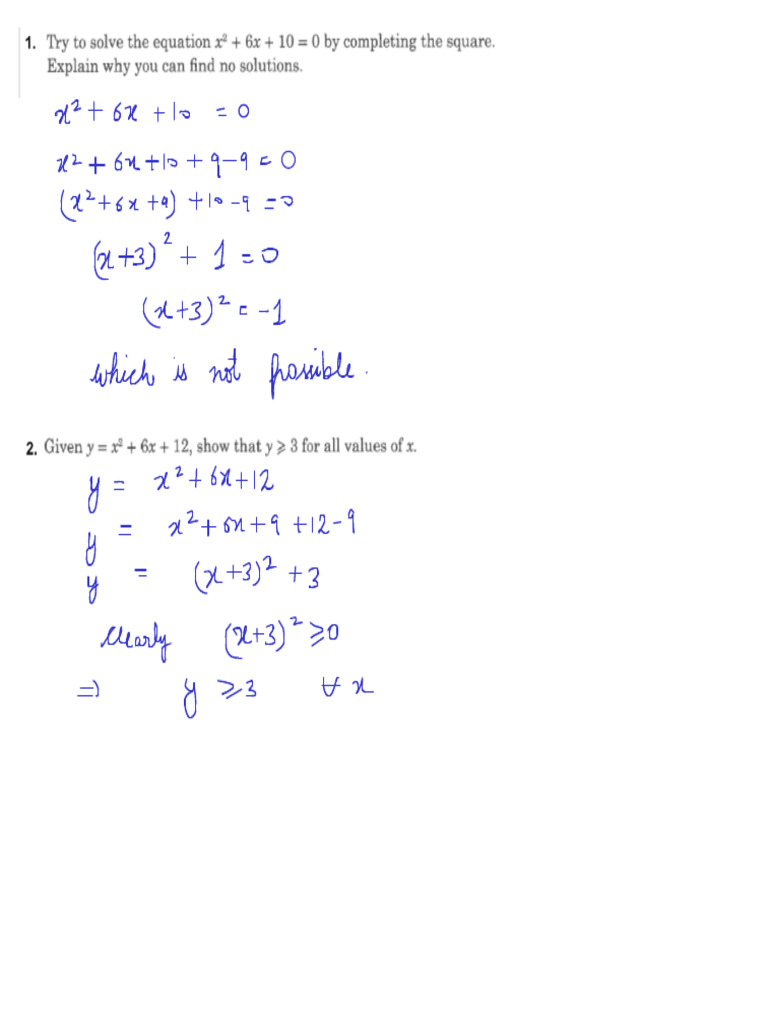 1. Try to solve the equation x² + 6x + 10 = 0 by completing the square.
Explain why you can find no solutions.
x² + 6x + 10 = 0
x² + 6x + 10 + 9 - 9 = 0
(x² + 6x + 9) + 10 - 9 = 0
(x+3)² + 1 = 0
(x+3)² = -1
which is not possible.
2. Given y = x² + 6x + 12, show that y ⩾ 3 for all values of x.
y = x² + 6x + 12
y = x² + 6x + 9 + 12 - 9
y = (x+3)² + 3
clearly (x+3)² ⩾ 0
⇒ y ⩾ 3 ∀ x